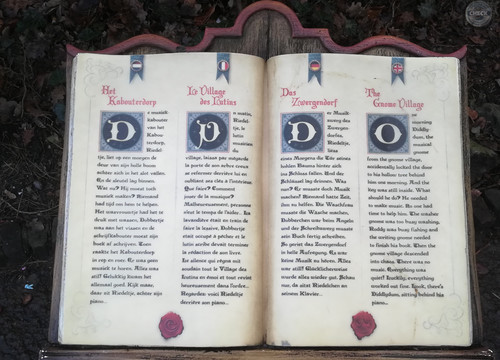 Het
Kabouterdorp
De muzikale
kabouter
van het
Kabou-
terdorp,
Riedel-
tje, liet op een morgen de
deur van zijn holle boom
achter zich in het slot vallen.
En de sleutel lag binnen.
Wat nu? Hij moest toch
muziek maken? Niemand
had tijd om hem te helpen.
Het wasvrouwtje had het te
druk met wassen. En
was aan het vissen en de
schrijfkabouter moest zijn
boek af schrijven. Toen
zakte het Kabouterdorp
in rep en roer. Er was geen
muziek te horen. Alles was
stil! Gelukkig kwam het
allemaal goed. Kijk maar,
daar zit Riedeltje, achter zijn
piano...
Le Village
des Lutins
Un matin,
Riedel-
tje, le
lutin
musicien
du
village, laissa par mégarde
la porte de son arbre creux
se refermer derrière lui en
oubliant ses clés à l'intérieur.
Que faire? Comment
jouer de la musique?
Malheureusement, personne
n'eut le temps de l'aider. La
lavandière était en train de
faire la lessive, Dobbertje
était occupé à pêcher et le
lutin stelle devait terminer
la rédaction de son livre.
Le silence qui régna mit
soudain tout le Village des
Lutins en émoi et tout revint
heureusement dans l'ordre..
Regardez: voici Riedeltje
derrière son piano...
Das
Zwergendorf
Der Musik-
zwerg des
Zwergen-
dorfes,
Riedeltje,
liess
eines Morgens die Tür seines
hohlen Baums hinter sich
ins Schloss fallen. Und der
Schlüssel lag drinnen. Was
nun? Er musste doch Musik
machen! Niemand hatte Zeit,
ihm zu helfen. Die Waschfrau
musste die Wäsche waschen,
Dobberchen war beim Angeln
und der Schreibzwerg musste
sein Buch fertig schreiben.
So geriet das Zwergendorf
in helle Aufregung. Es war
keine Musik zu hören. Alles
war still! Glücklicherweise
wurde alles wieder gut. Schau
nur, da sitzt Riedelchen an
seinem Klavier...
The
Gnome Village
One
morning
Diddly-
dum, the
musical
gnome
from the gnome village,
accidentally locked the door
to his hollow tree behind
him one morning. And the
key was still inside. What
should he do? He needed
to make music. No one had
time to help him. The washer
gnome was too busy washing.
Boddy was busy fishing and
the writing gnome needed
to finish his book. Then the
gnome village descended
into chaos. There was no
music. Everything was
quiet! Luckily, everything
worked out fine. Look, there's
Diddlydum, sitting behind his
piano...